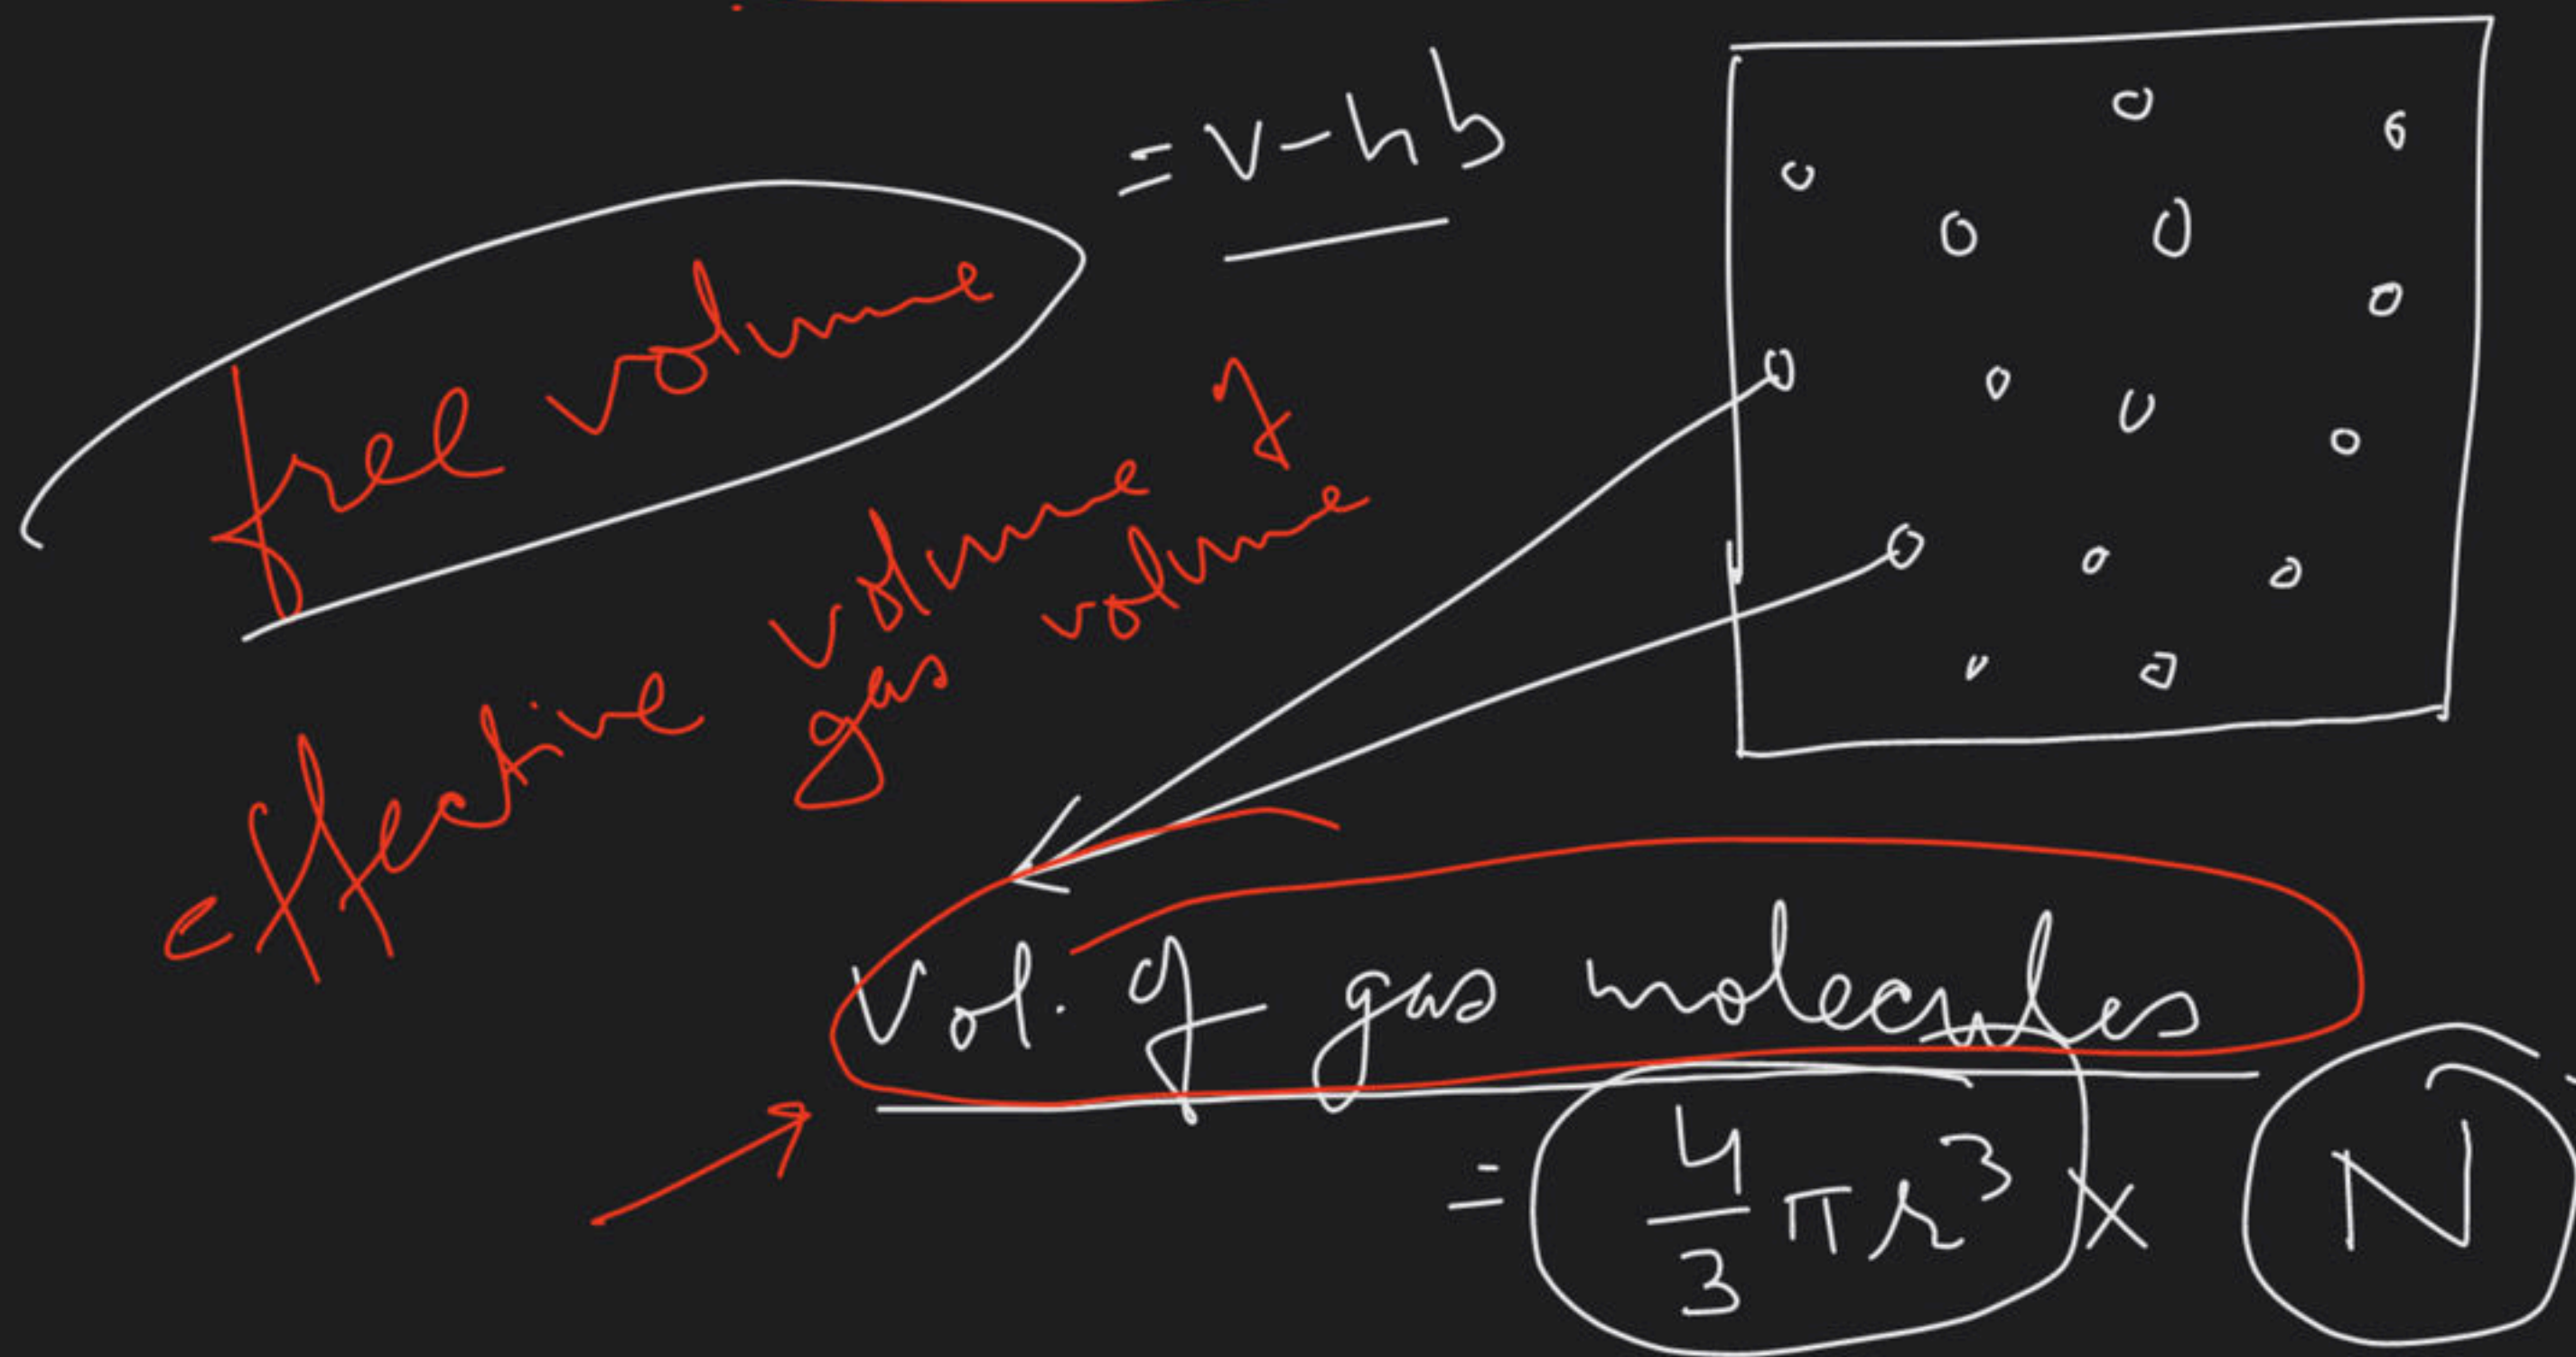 = V - nb
free volume
effective volume of
gas volume
Vol. of gas molecules
= 4/3 πr³ × N